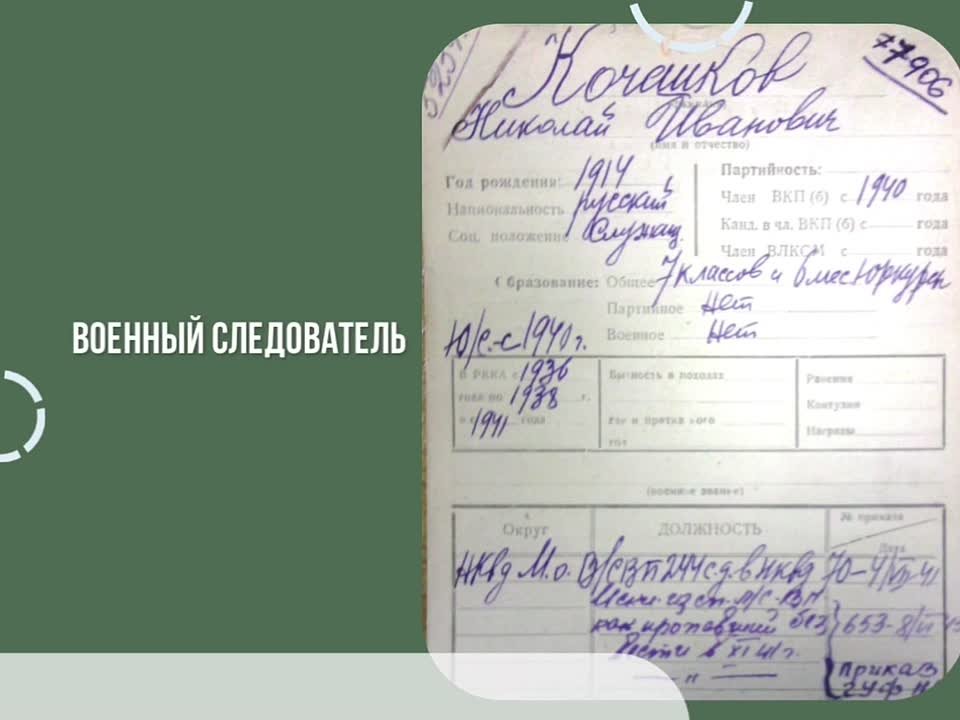 ВОЕННЫЙ СЛЕДОВАТЕЛЬ
77906
Кочашков
Николай Иванович
(имя и отчество)
Год рождения: 1914
Национальность русский
Соц. положение Служащ.
Партийность:
Член ВКП (б) с 1940 года
Канд. в чл. ВКП (б) с года
Член ВЛКСМ с года
Образование: Общее 7 классов и 6 мес Юркурсы
Партийное Нет
Военное Нет
Ю/с.-с 1940 г.
В РККА с 1936
года по 1938 г.
и с 1941 года
Бытность в походах
где и против кого
Ранения
Контузии
Награды
(военное звание)
Округ
ДОЛЖНОСТЬ
№ приказа
Дата
НКВД М.о. В/С ВП 244 с.д. в НКВД 70-4/VII-41
как пропавший без
Вести в XI 41 г.
653-8/VI
— " —
Приказ
ГУФ